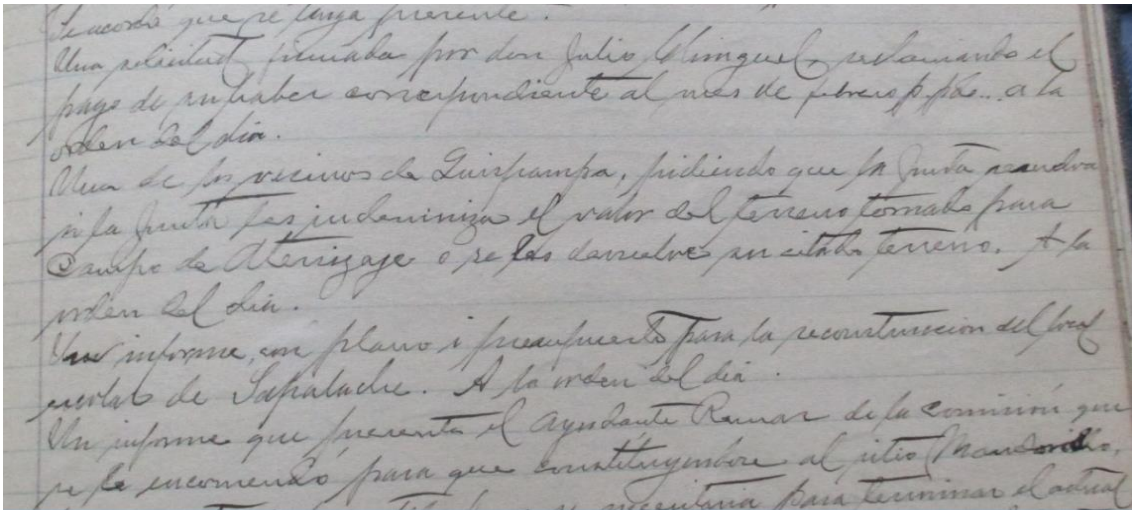 Se acordó que se tenga presente.
Una solicitud firmada por don Julio Chinguel, reclamando el
pago de su haber correspondiente al mes de febrero p. pdo... a la
orden del día.
Una de los vecinos de Quispampa, pidiendo que la Junta
si la Junta les indeminiza el valor del terreno tomado para
Campo de Aterizaje o se les devuelve su citado terreno. A la
orden del día.
Un informe, con plano i presupuesto para la reconstrucion del local
escolar de Sapalache. A la orden del día.
Un informe que presenta el Ayudante Remar de la comisión que
se le encomendó para que constituyendose al sitio
se necesitaria para terminar el actual